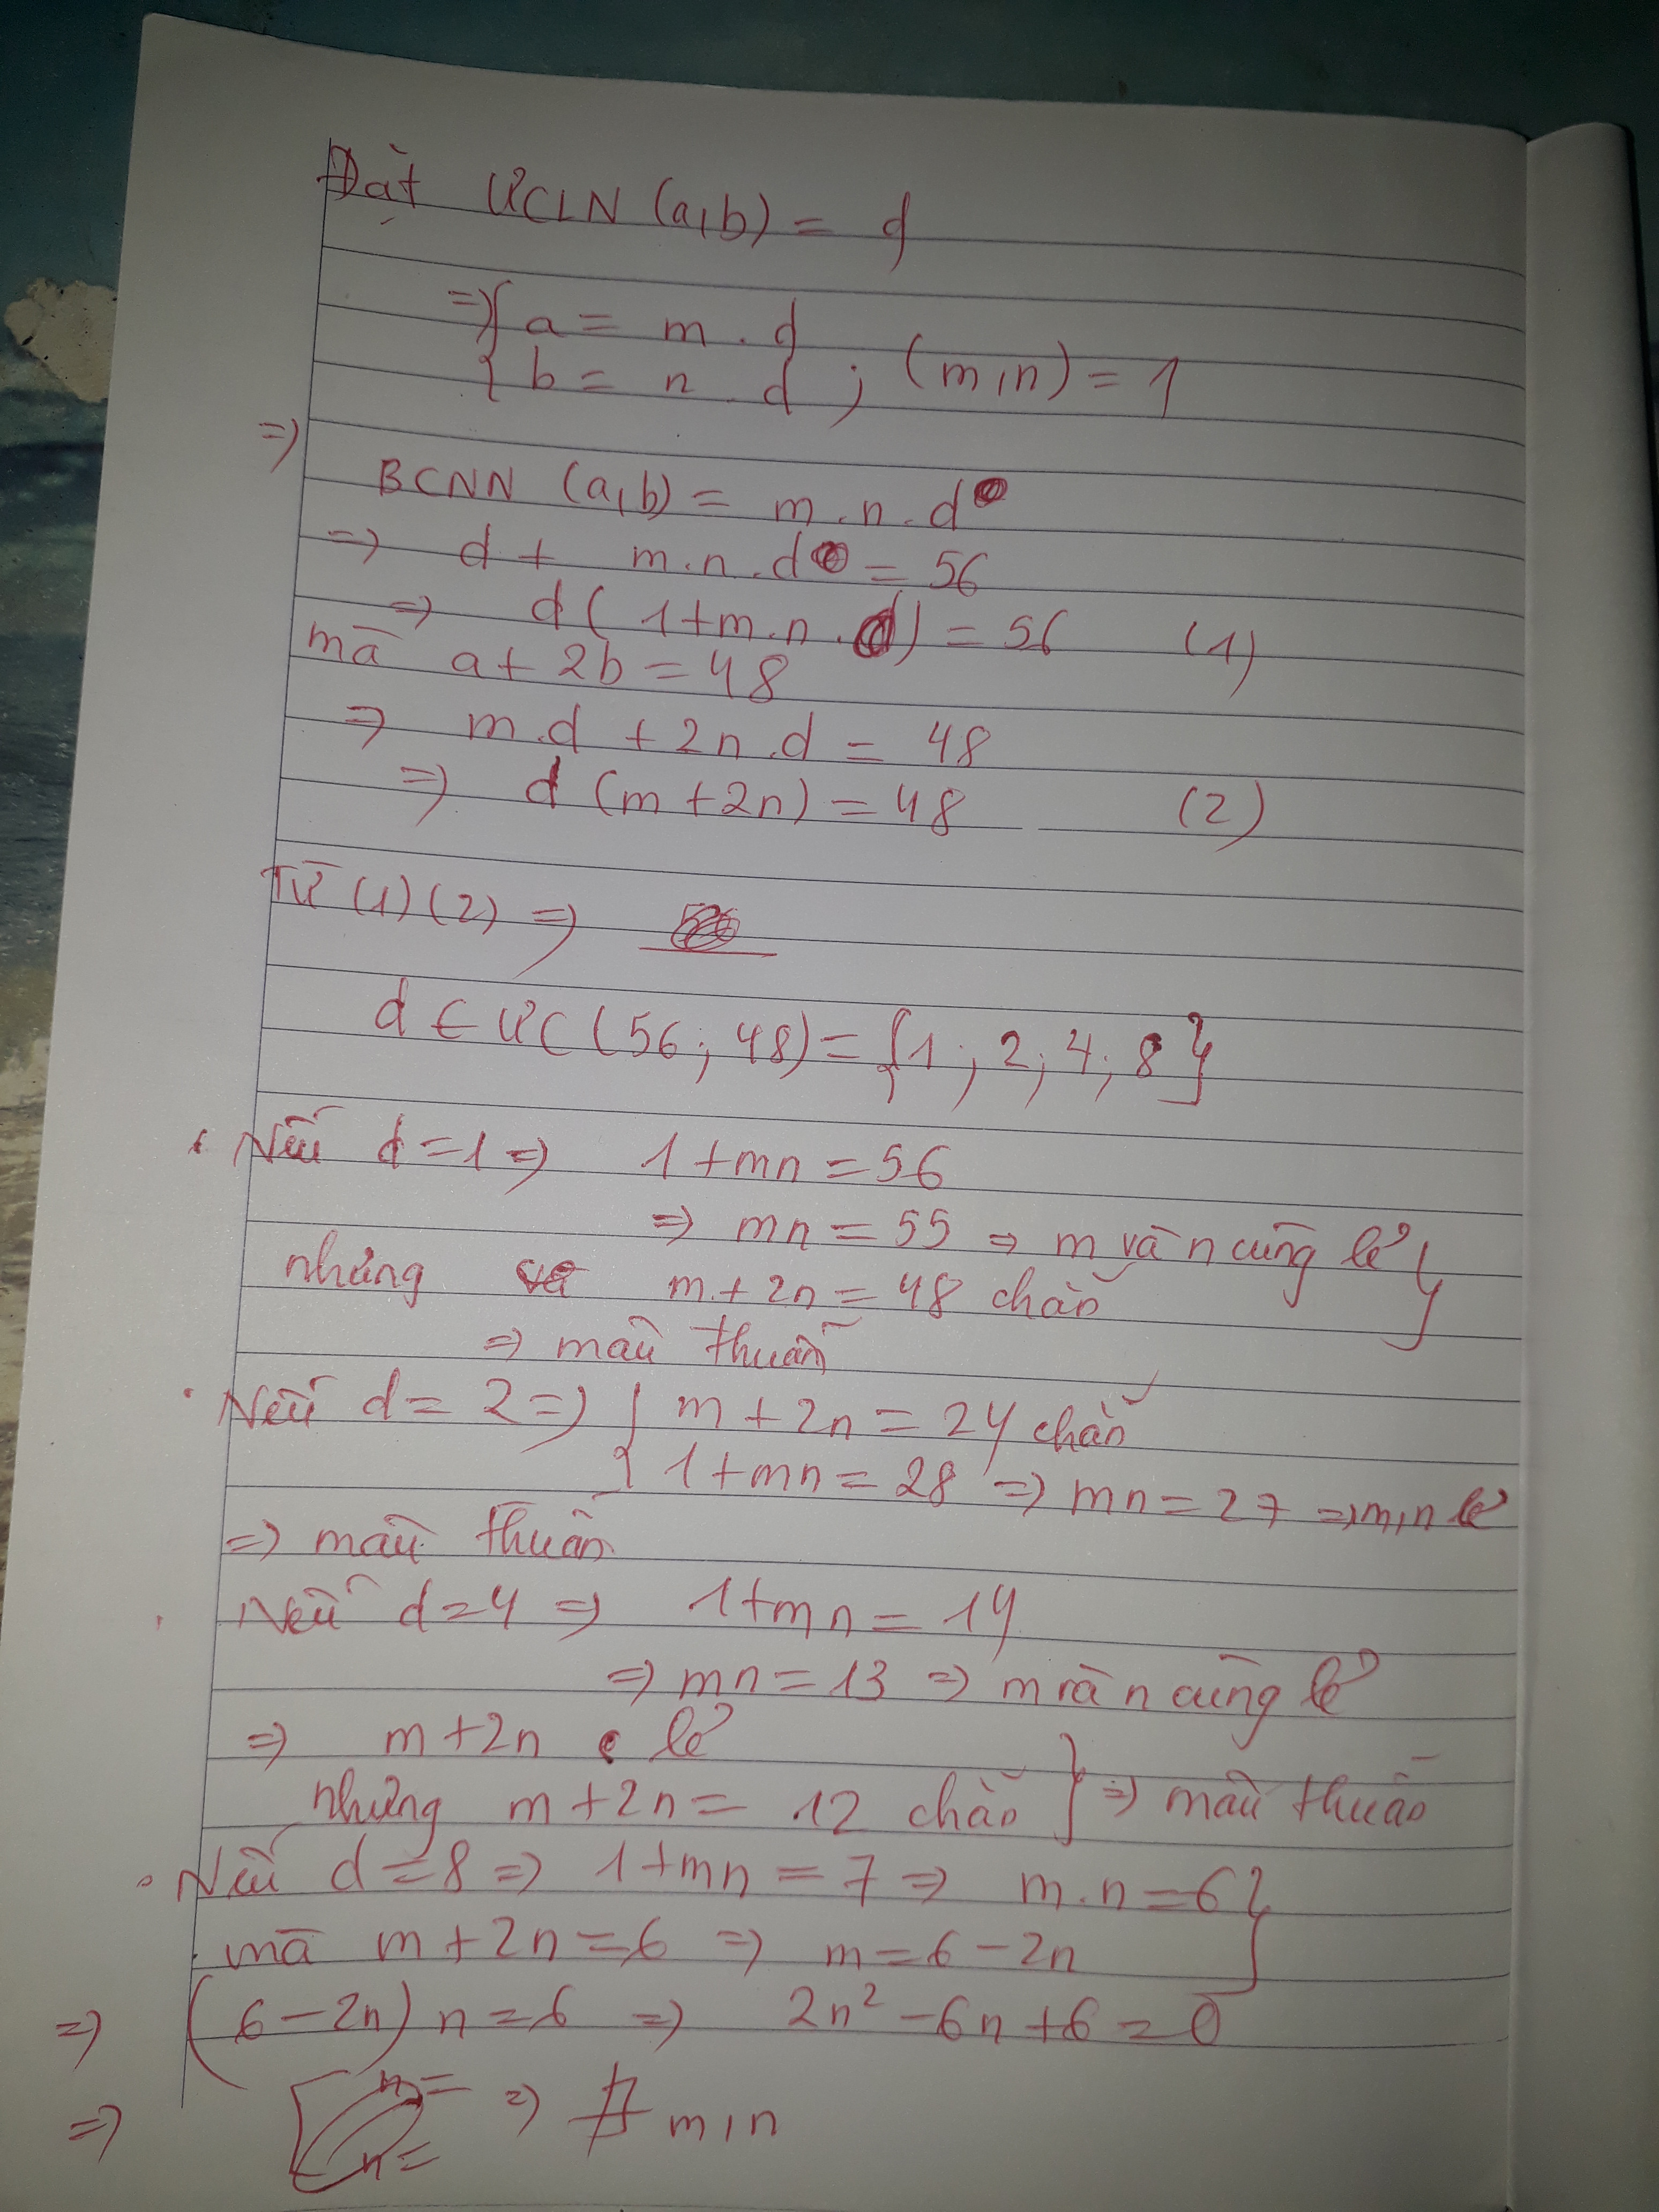 Đặt ƯCLN (a,b) = d
=> { a = m . d
{ b = n . d ; (m,n) = 1
=>
BCNN (a,b) = m.n.d
=> d + m.n.d = 56
=> d(1+m.n.) = 56 (1)
mà a + 2b = 48
=> m.d + 2n.d = 48
=> d (m + 2n) = 48 (2)
Từ (1) (2) =>
d ∈ ƯC (56; 48) = {1; 2; 4; 8}
Nếu d = 1 => 1 + mn = 56
=> mn = 55 => m và n cùng lẻ }
nhưng m + 2n = 48 chẵn
=> mâu thuẫn
. Nếu d = 2 => { m + 2n = 24 chẵn
{ 1 + mn = 28 => mn = 27 => m,n lẻ
=> mâu thuẫn
. Nếu d = 4 => 1 + mn = 14
=> mn = 13 => m và n cùng lẻ
=> m + 2n lẻ
nhưng m + 2n = 12 chẵn } => mâu thuẫn
. Nếu d = 8 => 1 + mn = 7 => m.n = 6 }
mà m + 2n = 6 => m = 6 - 2n
=> (6 - 2n) n = 6 => 2n² - 6n + 6 = 0
=> n = n = => ∄ m,n